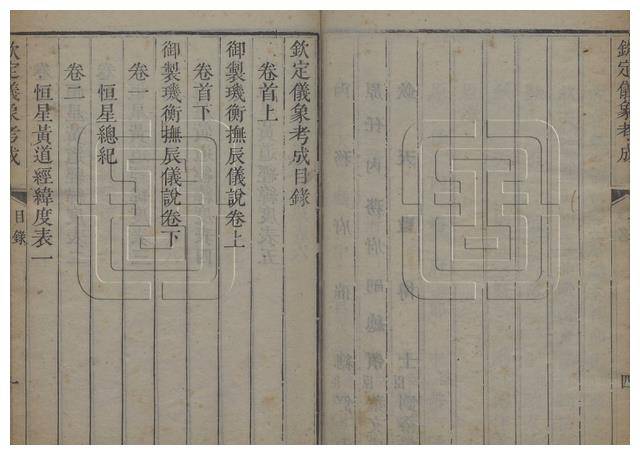 欽定儀象考成
四
欽定儀象考成目錄
卷首上
御製璣衡撫辰儀說卷上
卷首下
御製璣衡撫辰儀說卷下
卷一
恒星總紀
卷二
恒星黃道經緯度表一
欽定儀象考成
目錄
一